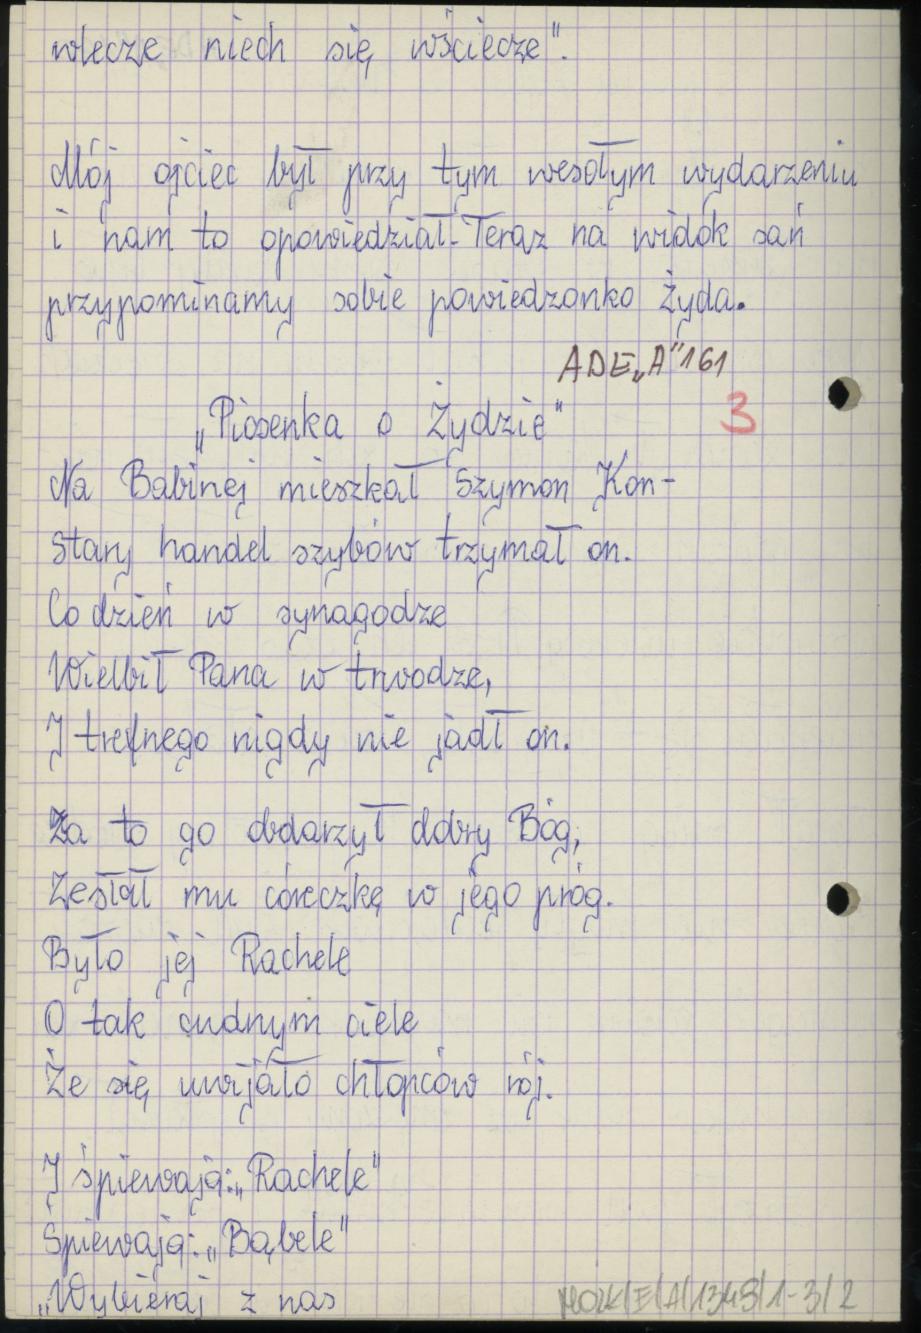 wlecze niech się wściecze".
Mój ojciec był przy tym wesołym wydarzeniu
i nam to opowiedział. Teraz na widok sań
przypominamy sobie powiedzonko Żyda.
ADE„A"161
3
„Piosenka o Żydzie"
Na Babinej mieszkał Szymon Kon-
Stary handel szybów trzymał on.
Co dzień w synagodze
Wielbił Pana w trwodze,
I trefnego nigdy nie jadł on.
Za to go obdarzył dobry Bóg,
Zesłał mu córeczkę w jego próg.
Było jej Rachele
O tak cudnym ciele
Że się uwijało chłopców rój.
I śpiewają: „Rachele"
Śpiewają: „Bąbele"
„Wybieraj z nas
MOZK/E/A/1348/1-3/2